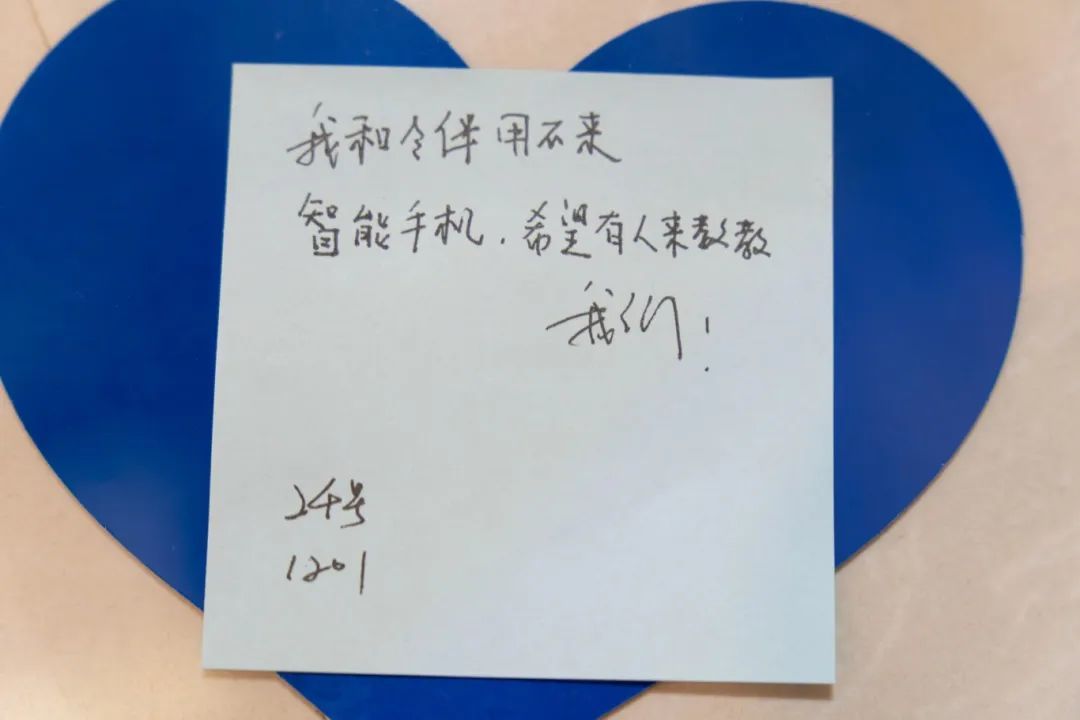 我和令伴用不来
智能手机，希望有人来教教
我们！
24号
1201